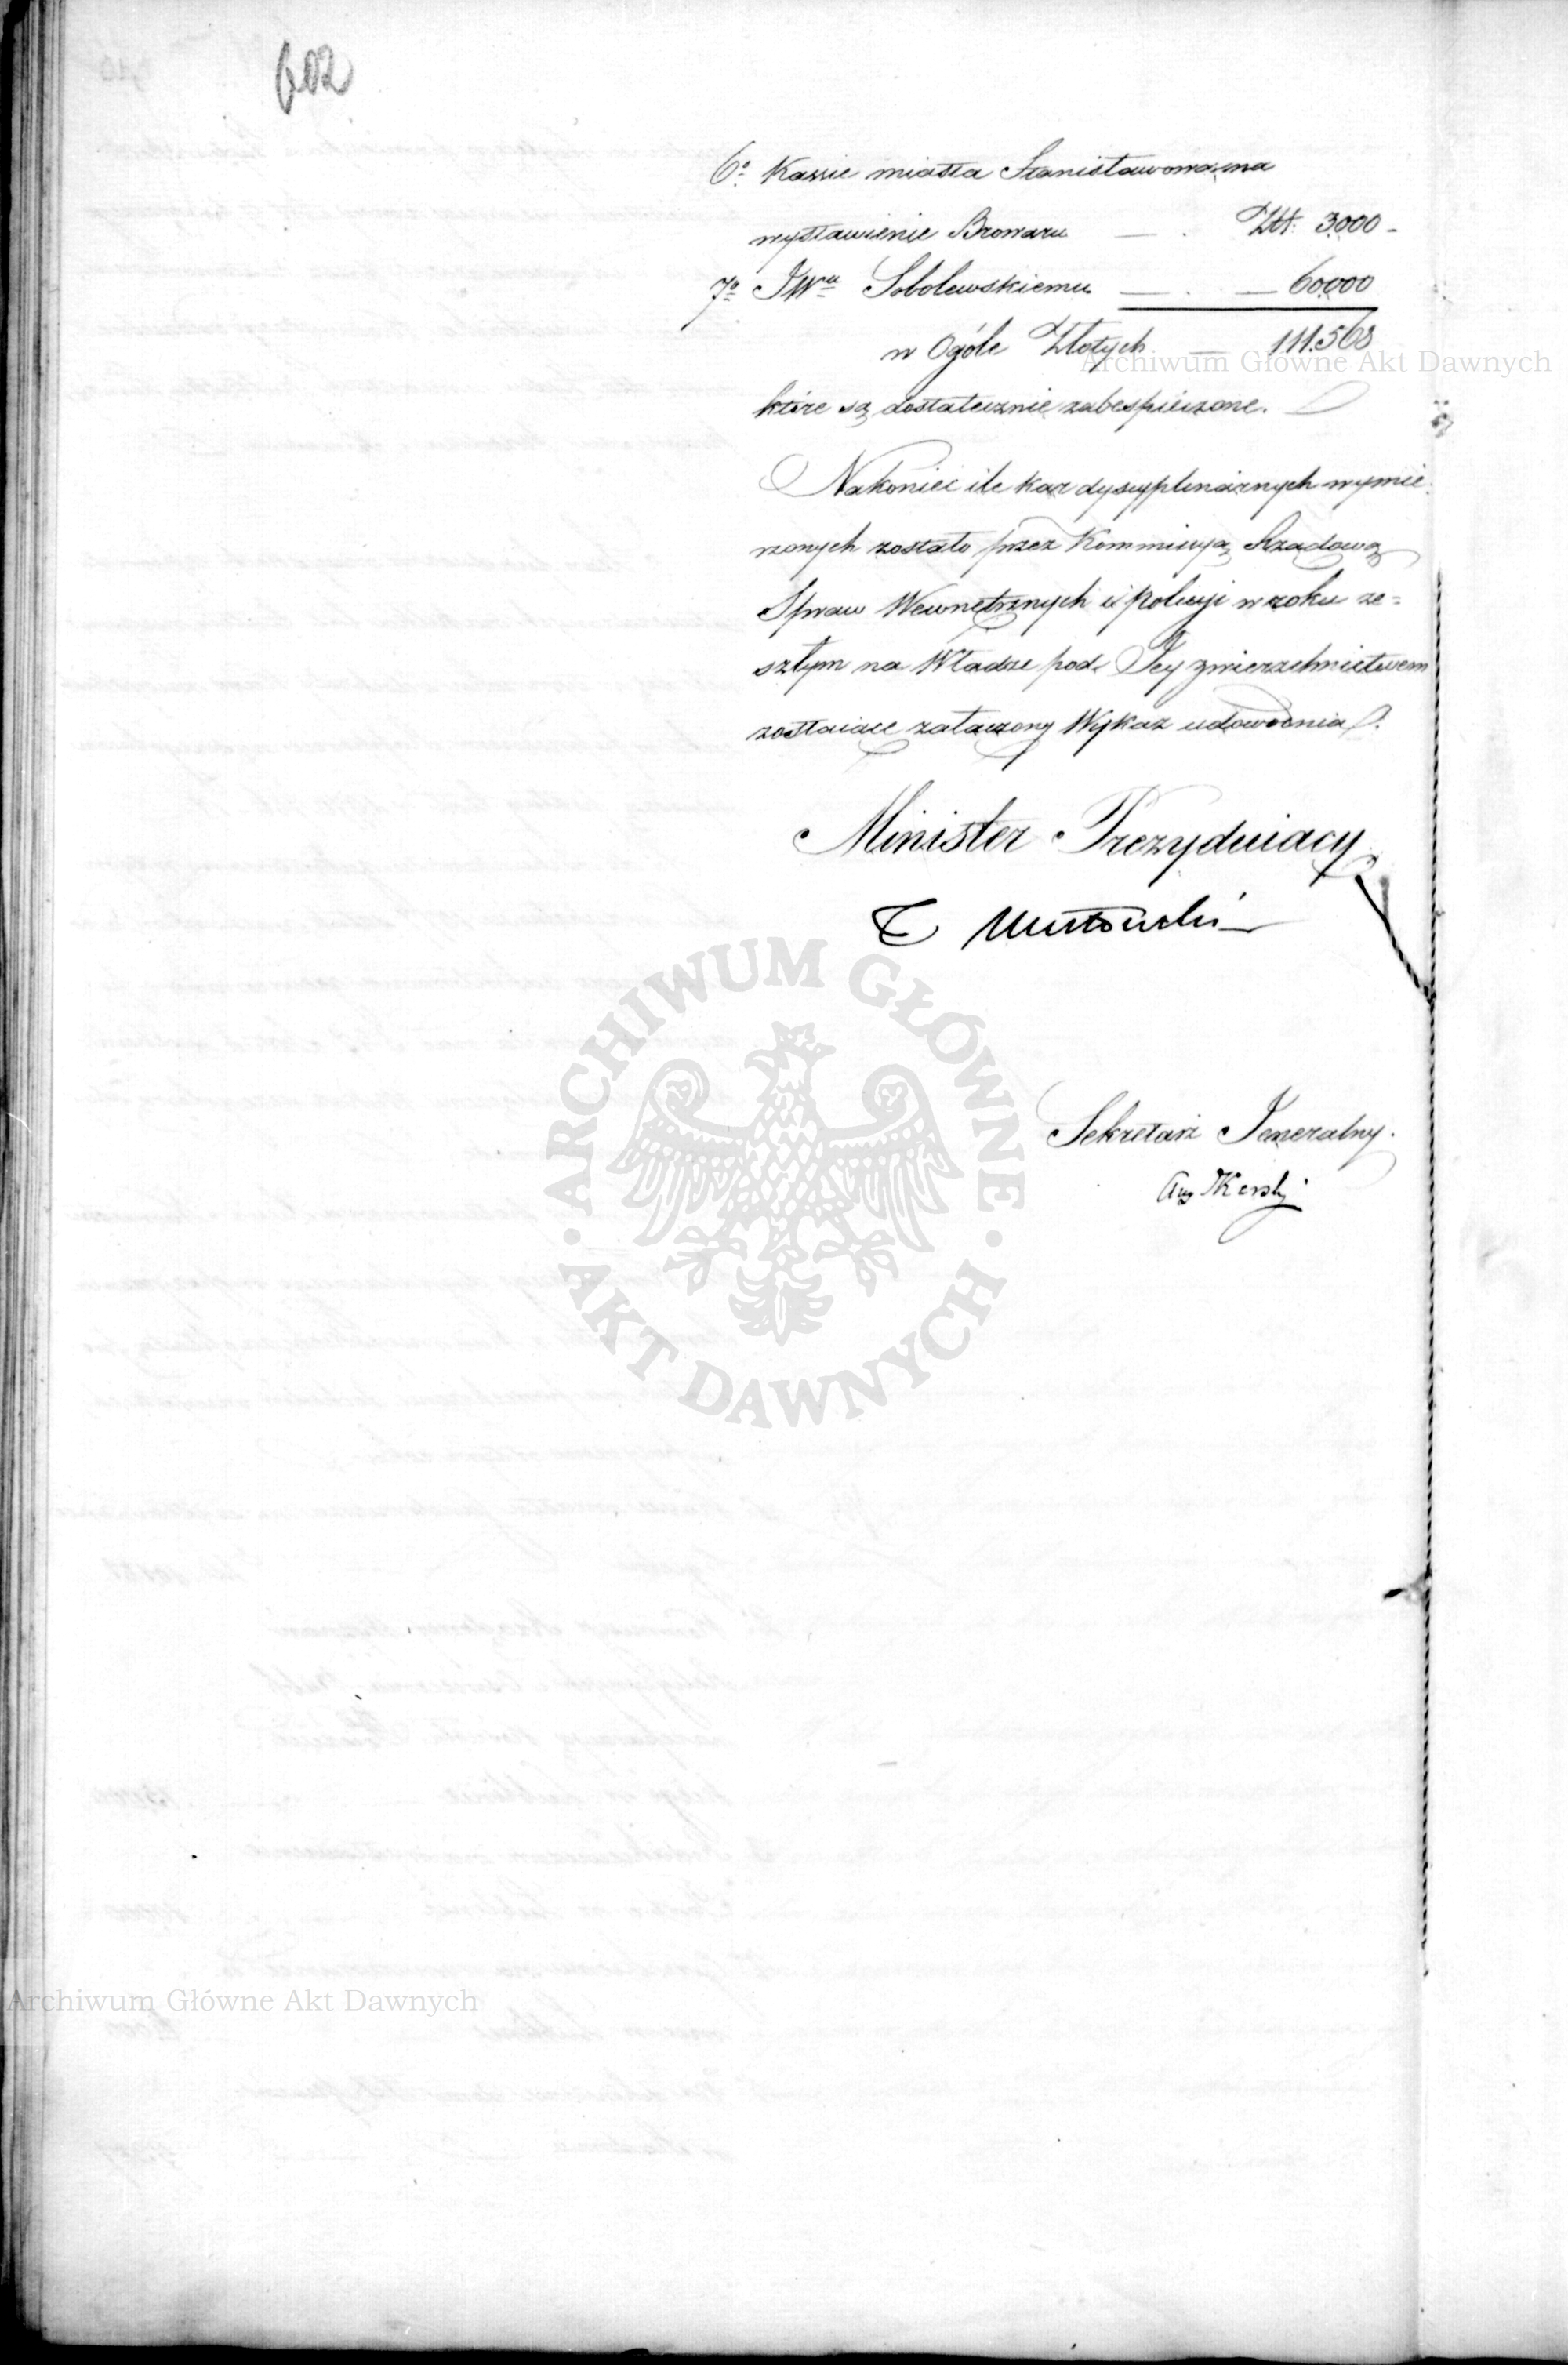 602
6º Kassie miasta Stanisławowa na
wystawienie Browaru — . Złt. 3000 -
7º JWu Sobolewskiemu — . — 60000
w Ogóle Złotych — 111.568
Archiwum Główne Akt Dawnych
które są dostatecznie zabespieczone.
Nakoniec ile kar dyscyplinarnych wymie-
rzonych zostało przez Kommissyą Rządową
Spraw Wewnętrznych i Policyi w roku ze=
szłym na Władze pod Jey zwierzchnictwem
zostaiące załączony Wykaz udowodnia.
Minister Prezyduiący
T Mostowski
ARCHIWUM GŁÓWNE
· AKT DAWNYCH ·
Sekretarz Jeneralny.
Aug Karski
Archiwum Główne Akt Dawnych